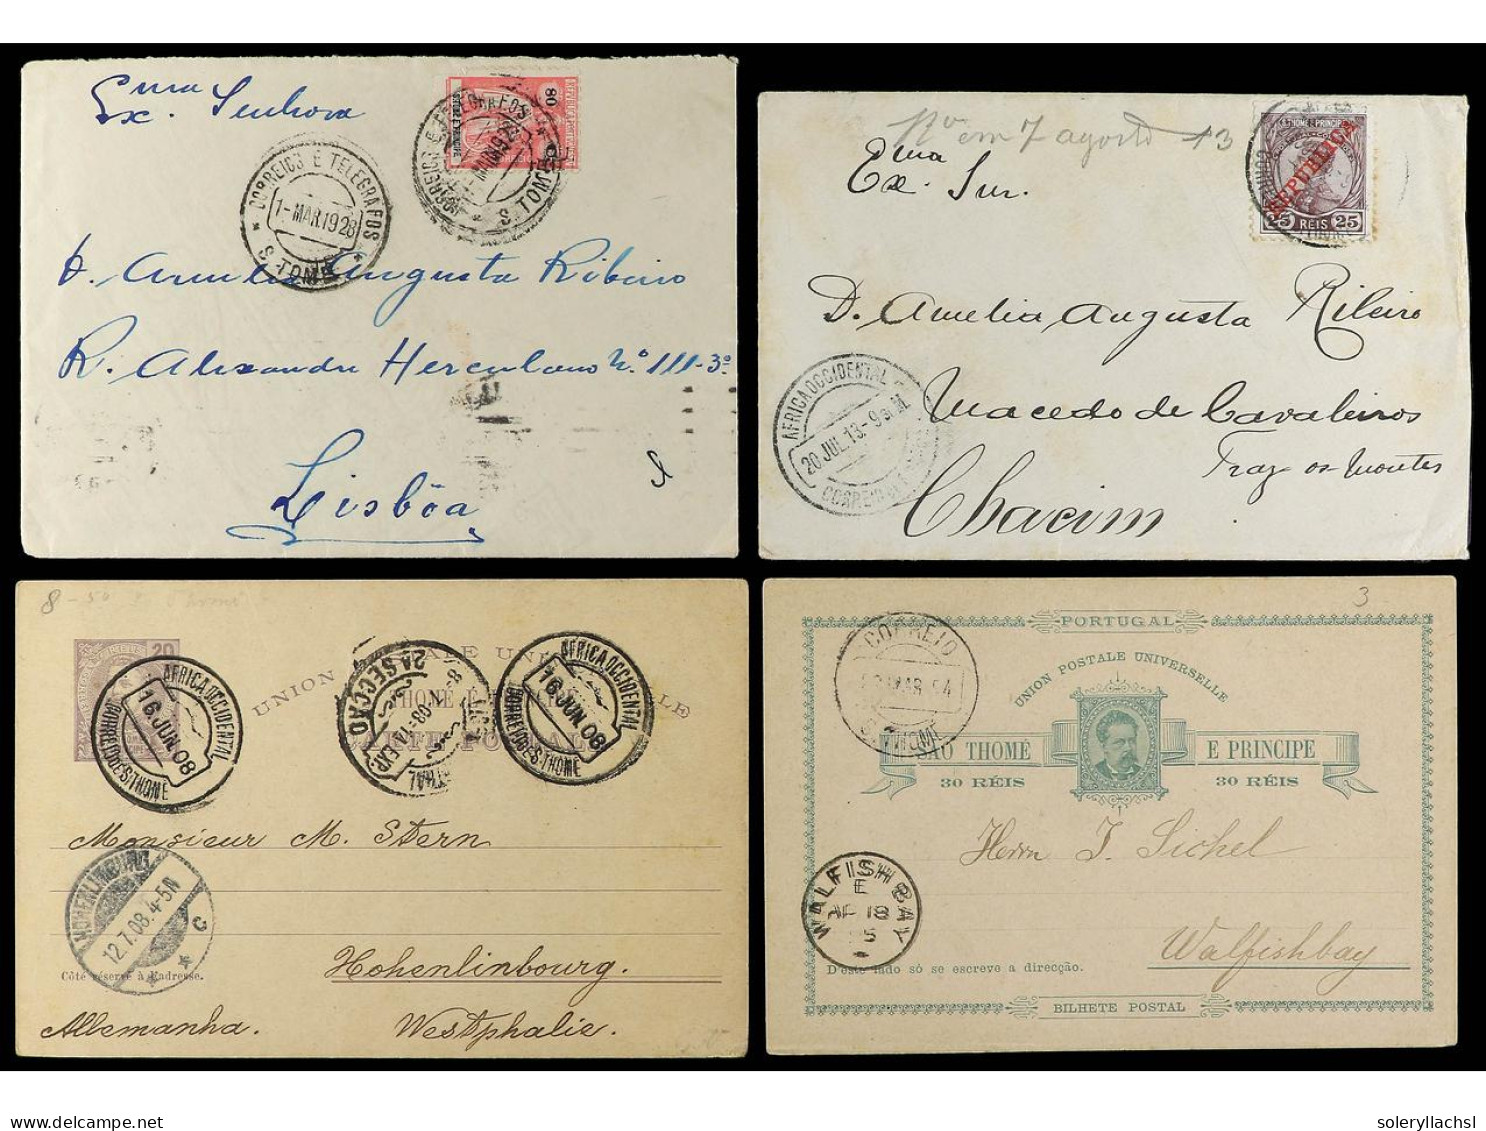 Exma Senhora
CORREIOS E TELEGRAFOS
1-MAR.1928
S. TOMÉ
D. Amelia Augusta Ribeiro
R. Alexandre Herculano Nº 111-3º
Lisbôa
em 7 agosto 13
Exma Snr.
S. THOMÉ E PRINCIPE
REPUBLICA
25 REIS 25
D. Amelia Augusta Ribeiro
AFRICA OCCIDENTAL
20 JUL. 13.-9
CORREIO
Macedo de Cavaleiros
Traz os Montes
Chacim
20
UNION POSTALE UNIVERSELLE
AFRICA OCCIDENTAL
16 JUN. 08
CORREIO DE S. THOMÉ
2A SECÇÃO
AFRICA OCCIDENTAL
16 JUN. 08
CORREIO DE S. THOMÉ
Monsieur M. Stern
HOHENLIMBURG
12.7.08.4-5N
c
Côté réservé à l'adresse.
Hohenlinbourg.
Allemanha.
Westphalie.
3
PORTUGAL
UNION POSTALE UNIVERSELLE
CORREIO
S. THOMÉ
SÃO THOMÉ E PRINCIPE
30 RÉIS 30 RÉIS
Herrn J. Sichel
WALFISH BAY
E
AP 18
95
Walfishbay
D'este lado só se escreve a direcção.
BILHETE POSTAL
soleryllachsl